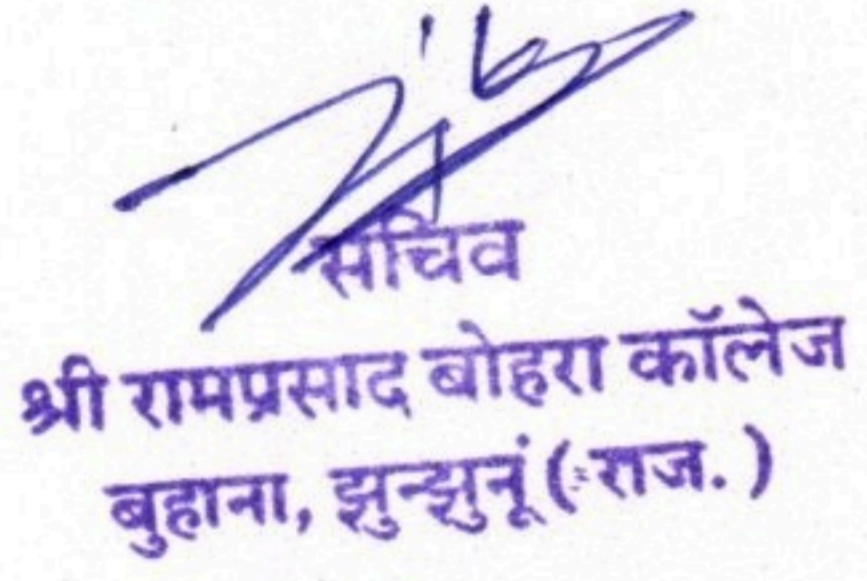 सचिव
श्री रामप्रसाद बोहरा कॉलेज
बुहाना, झुन्झुनूं ( राज. )